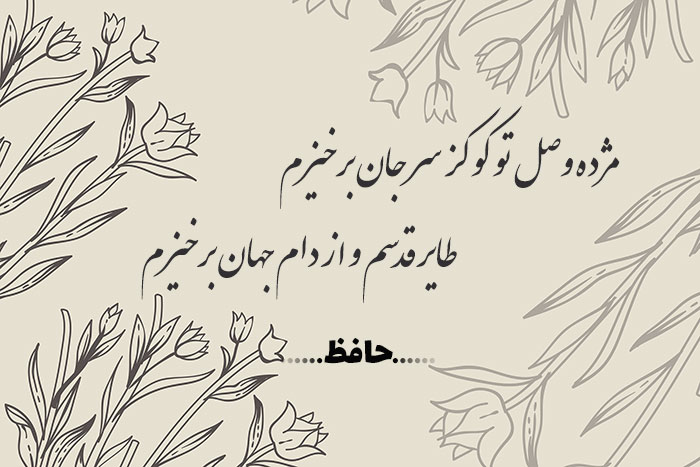 مژده وصل تو کو کز سر جان برخیزم
طایر قدسم و از دام جهان برخیزم
......حافظ......